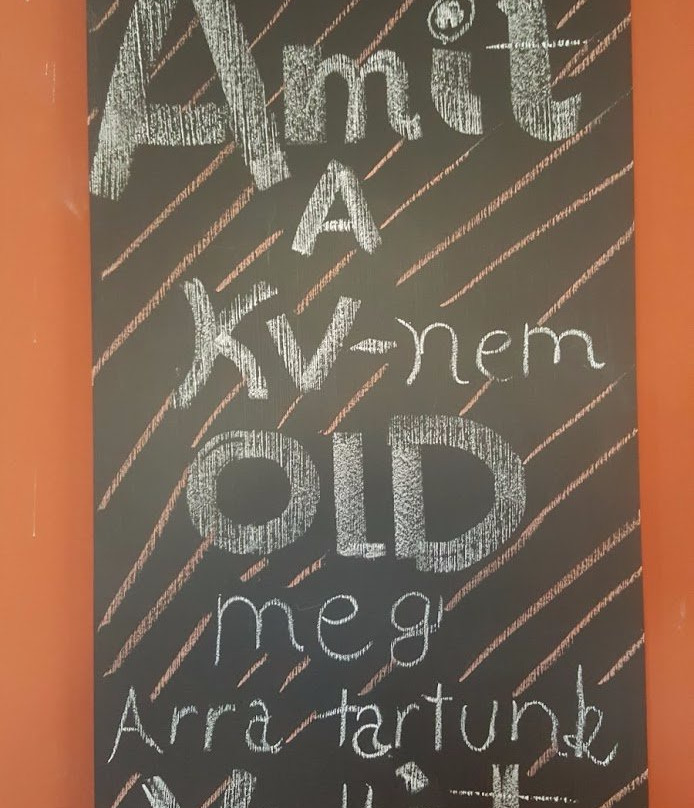 Amit
A
KV-nem
OLD
meg
Arra tartunk